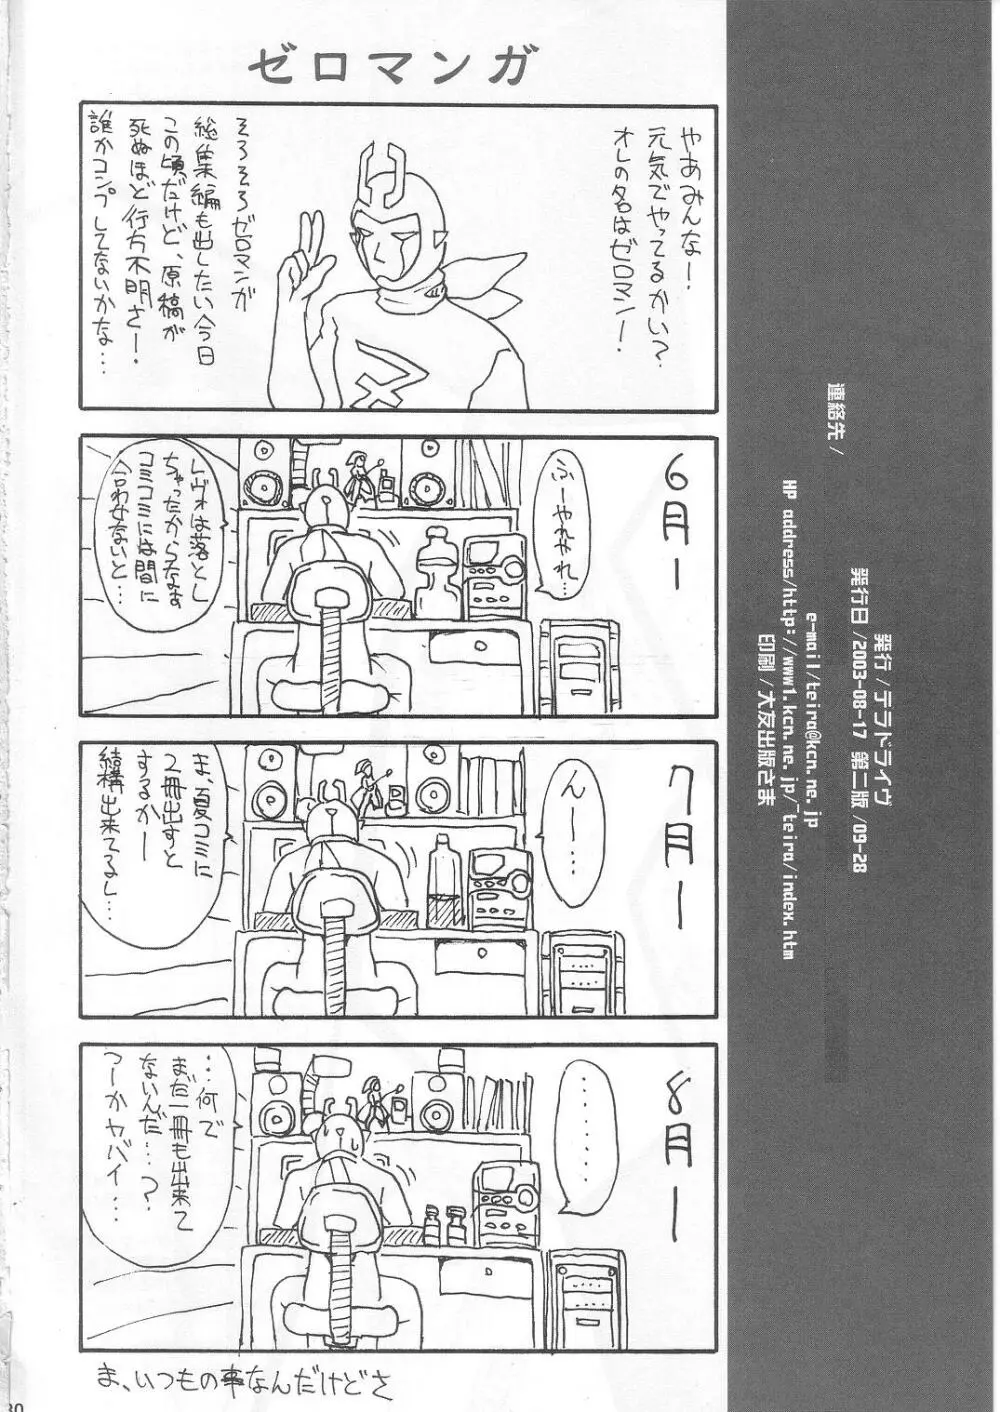 ゼロマンガ
やあみんなー!
元気でやってるかい?
オレの名はゼロマン!
そろそろゼロマンガ
総集編も出したい今日
この頃だけど、原稿が
死ぬほど行方不明さー!
誰かコンプしてないかな…
6月ー
ふーやれやれ…
レヴォは落とし
ちゃったからなぁ
コミコミには間に
合わせないと…
7月ー
んー…
ま、夏コミに
2冊出すと
するかー
結構出来てるし…
8月ー
………
…何で
まだ一冊も出来て
ないんだ…?
つーかヤバイ…
ま、いつもの事なんだけどさ
発行/テラドライヴ
発行日/2003-08-17 第二版/09-28
連絡先/
e-mail/teira@kcn.ne.jp
HP address/http://www1.kcn.ne.jp/~teira/index.htm
印刷/大友出版さま
30